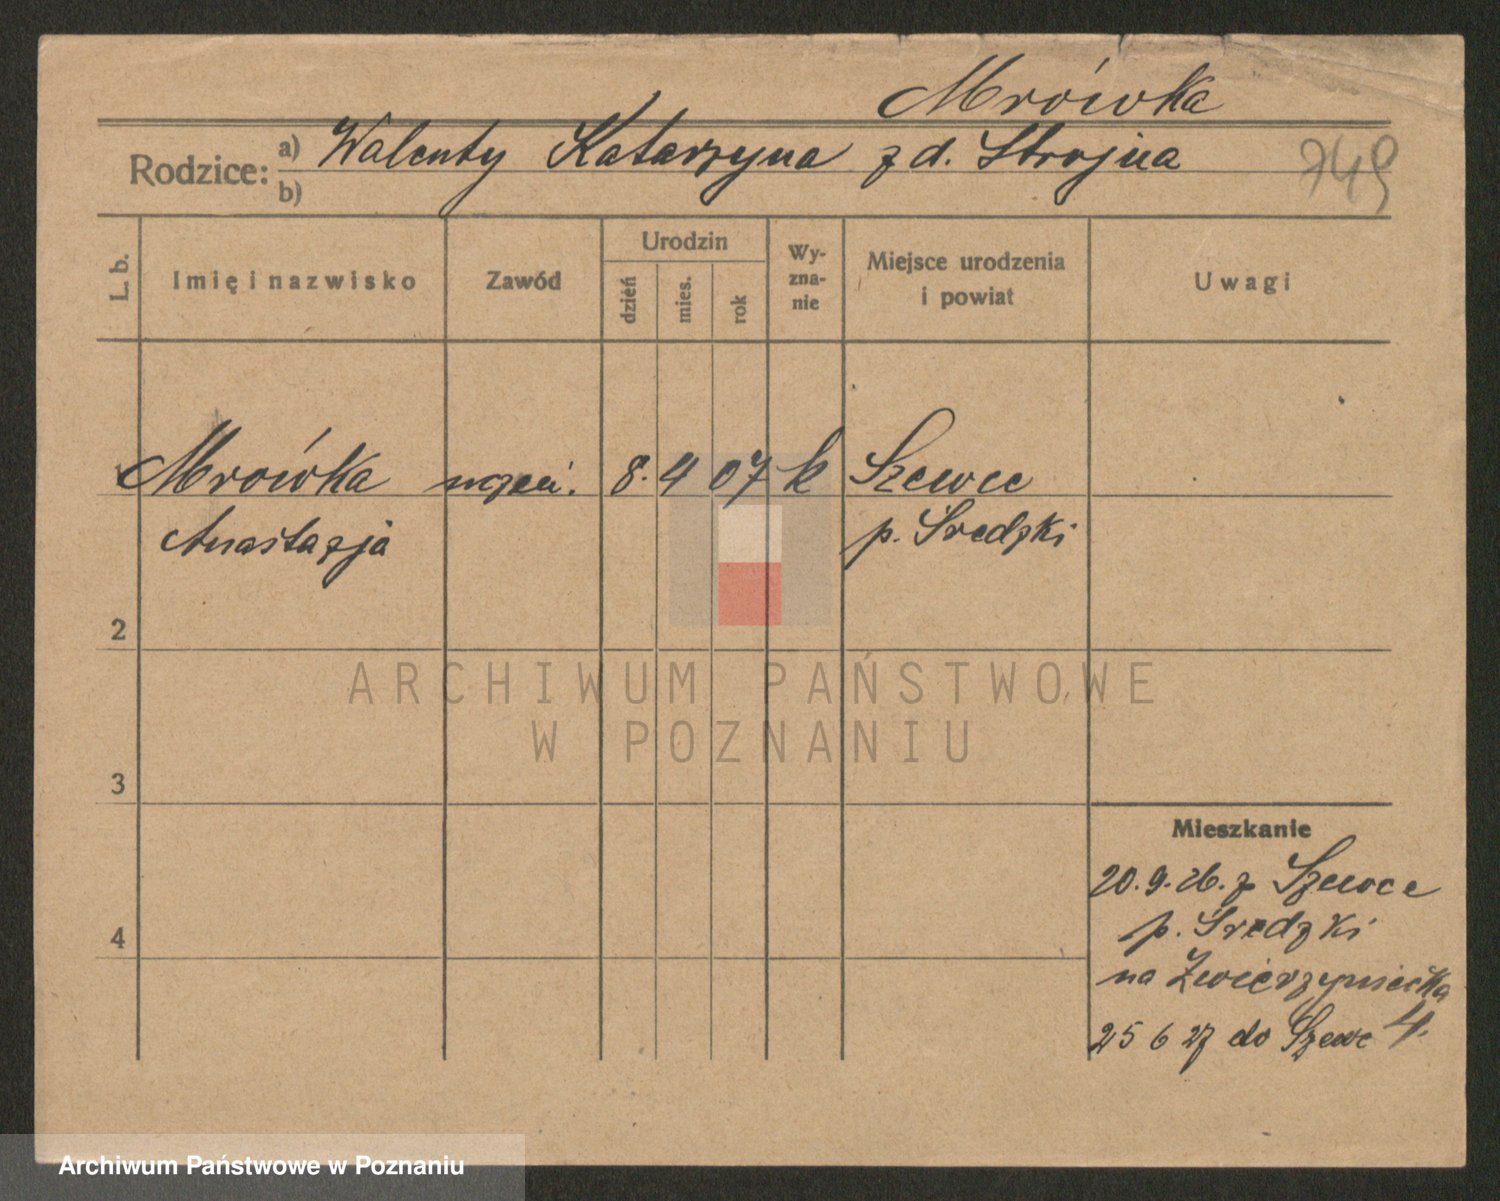 Mrówka
Rodzice: a) Walenty Katarzyna z d. Strojna
b)
749
L. b. Imię i nazwisko Zawód Urodzin dzień mies. rok Wyznanie Miejsce urodzenia i powiat Uwagi
Mrówka uczen. 8. 4 07 k Szewce
Anastazja p. Średzki
2
3
4
Mieszkanie
20. 9. 26. z Szewce
p. Średzki
na Zwierzyniecka
25 6 27 do Szewc 4.
ARCHIWUM PAŃSTWOWE
W POZNANIU
Archiwum Państwowe w Poznaniu